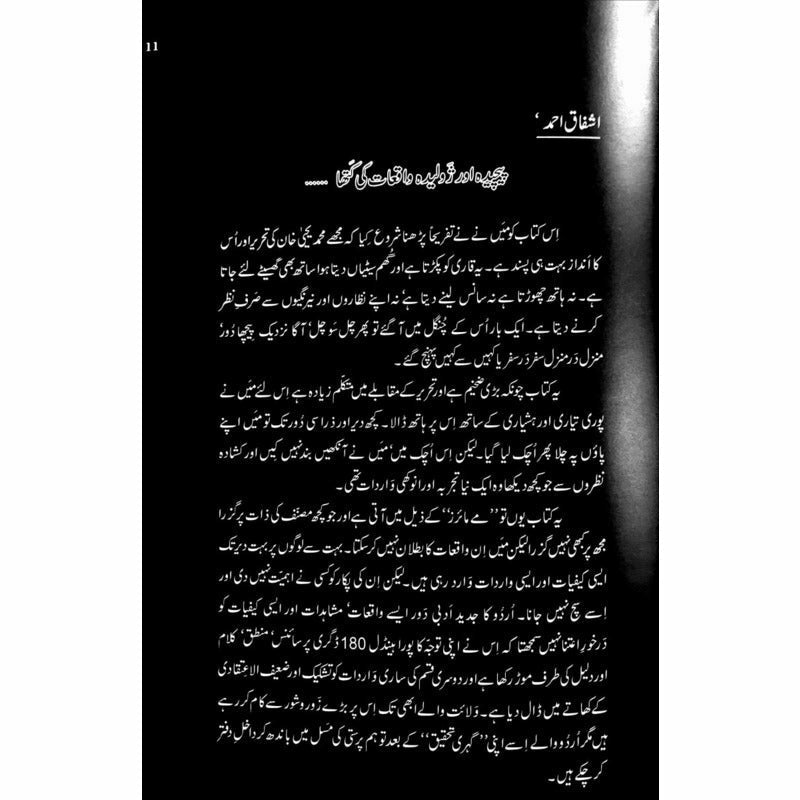 11
اشفاق احمد ‘
پیچیدہ اور ژولیدہ واقعات کی کتھا ......
اِس کتاب کو میَں نے نے تفریحاً پڑھنا شروع کِیا کہ مجھے محمد یحییٰ خان کی تحریر اور اُس
کا انداز بہت ہی پسند ہے۔ یہ قاری کو پکڑتا ہے اور گھُم سیٹیاں دیتا ہوا ساتھ بھی گھسیٹے لئے جاتا
ہے۔ نہ ہاتھ چھوڑتا ہے نہ سانس لینے دیتا ہے‘ نہ اپنے نظاروں اور نیرنگیوں سے صَرفِ نظر
کرنے دیتا ہے۔ ایک بار اُس کے چُنگل میں آ گئے تو پھر چل سَو چل‘ آگا نزدیک پیچھا دُور‘
منزل دَر منزل سفر دَر سفر یا کہیں سے کہیں پہنچ گئے۔
یہ کتاب چونکہ بڑی ضخیم ہے اور تحریر کے مقابلے میں متکلّم زیادہ ہے اِس لئے میَں نے
پوری تیاری اور ہشیاری کے ساتھ اِس پر ہاتھ ڈالا۔ کچھ دیر اور ذرا سی دُور تک تو میَں اپنے
پاؤں پہ چلا پھر اُچک لیا گیا۔ لیکن اِس اُچک میں‘ میَں نے آنکھیں بند نہیں کیں اور کشادہ
نظروں سے جو کچھ دیکھا وہ ایک نیا تجربہ اور انوکھی وَاردات تھی۔
یہ کتاب یوں تو ’’مے مائرز‘‘ کے ذیل میں آتی ہے اور جو کچھ مصنّف کی ذات پر گزرا
مجھ پر کبھی نہیں گزرا لیکن میَں اِن واقعات کا بطلان نہیں کر سکتا۔ بہت سے لوگوں پر بہت دیر تک
ایسی کیفیات اور ایسی واردات وَارد رہی ہیں۔ لیکن اِن کی پکار کو کسی نے اہمیّت نہیں دی اور
اِسے سچ نہیں جانا۔ اُردُو کا جدید اَدبی دَور ایسے واقعات‘ مشاہدات اور ایسی کیفیات کو
دَرخورِ اعتنا نہیں سمجھتا کہ اِس نے اپنی توجّہ کا پورا ہینڈل 180 ڈگری پر سائنس‘ منطق‘ کلام
اور دلیل کی طرف موڑ رکھا ہے اور دوسری قسم کی ساری وَاردات کو تشکیک اور ضعیف الاعتقادی
کے کھاتے میں ڈال دیا ہے۔ وَلائت والے ابھی تک اِس پر بڑے زَور و شور سے کام کر رہے
ہیں مگر اُردُو والے اِسے اپنی ’’گہری تحقیق‘‘ کے بعد توہم پرستی کی مَسل میں باندھ کر داخلِ دفتر
کر چکے ہیں۔